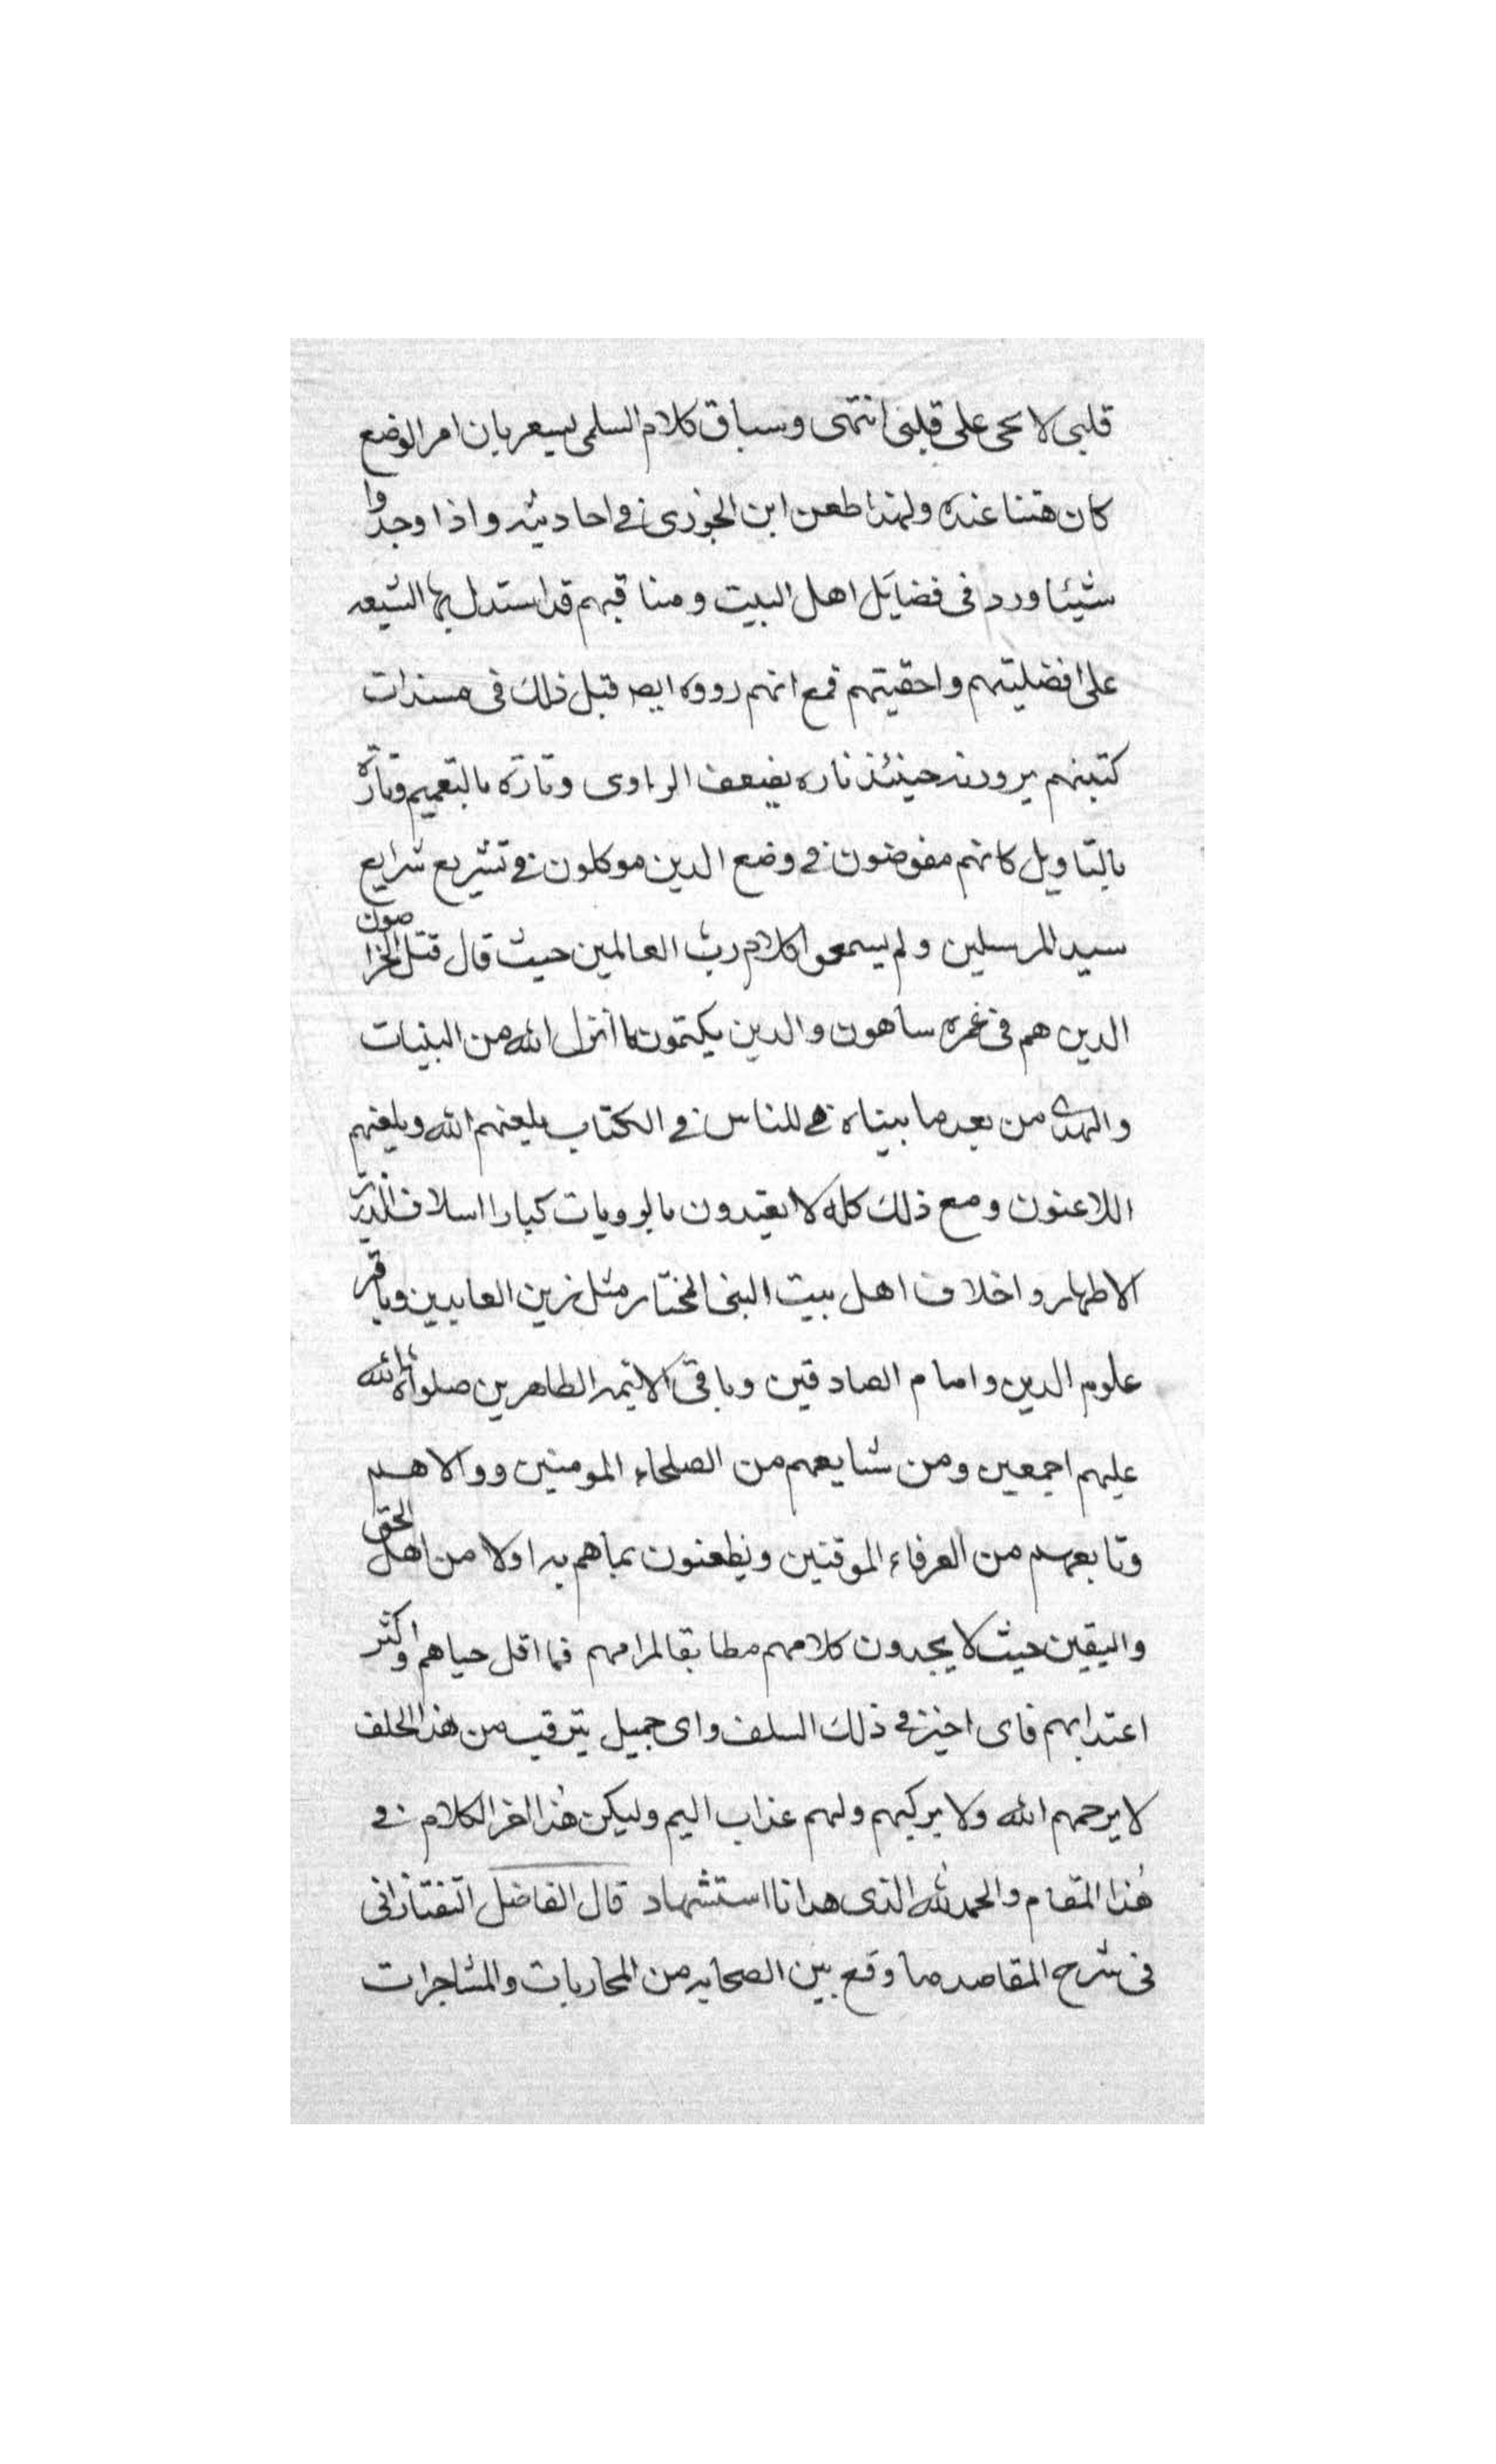 قلبى لا يحى على قلبى انتهى وسباق كلام السلمى ليسعر بان امر الوضع
كان هتنا عنده ولهذا طعن ابن الجوزى في احاديثه واذا وجدوا
شيئا ورد فى فضايل اهل البيت ومناقبهم قد استدل بها الشيعه
على افضليتهم واحقيتهم فمع انهم رووه ايص قبل ذلك فى مسندات
كتبهم يرودنه حينئذ تاره بضعف الراوى وتارة بالتعميم وتارة
بالتاويل كانهم مفوضون في وضع الدين موكلون في تشريع شرايع
سيد المرسلين ولم يسمعوا كلام رب العالمين حيث قال قتل الخراصون
الدين هم فى غمره ساهون والدين يكتمون ما انزل الله من البينات
والهدى من بعد ما بيناه للناس في الكتاب يلعنهم الله ويلعنهم
اللاعنون ومع ذلك كله لا يعتدون بالرويات كبار اسلاف الذرية
الاطهار واخلاف اهل بيت النبى المختار مثل زين العابدين وباقر
علوم الدين وامام الصادقين وباقى الائمه الطاهرين صلوات الله
عليهم اجمعين ومن شايعهم من الصلحاء المومنين ووالاهم
وتابعهم من العرفاء الموقنين ويطعنون بما هم به اولا من اهل الحق
واليقين حيث لا يجدون كلامهم مطابقا لمرامهم فما اقل حياهم واكثر
اعتدابهم فاى اخيز في ذلك السلف واى جميل يترقب من هذا الخلف
لا يرحمهم الله ولا يزكيهم ولهم عذاب اليم وليكن هذا اخر الكلام في
هذا المقام والحمد لله الذى هدانا استشهاد قال الفاضل التفتازانى
فى شرح المقاصد ما وقع بين الصحابه من المحاربات والمشاجرات